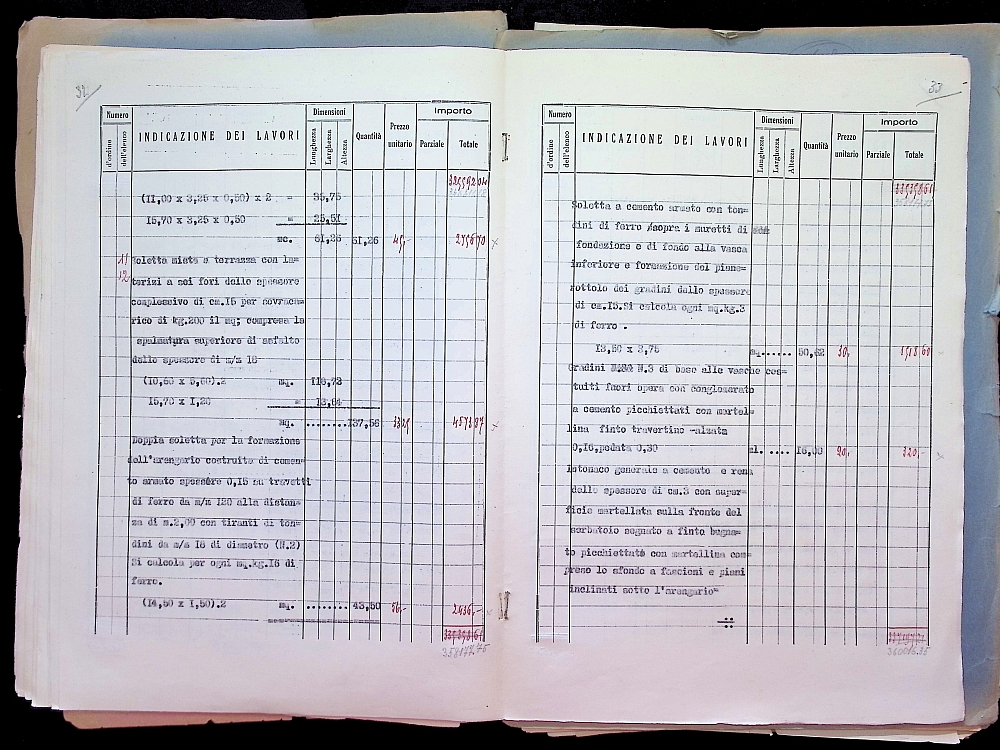 32
Numero
d'ordine
dell'elenco
INDICAZIONE DEI LAVORI
Dimensioni
Lunghezza
Larghezza
Altezza
Quantità
Prezzo unitario
Importo
Parziale
Totale
(II,00 x 3,25 x 0,50) x 2 = 35,75
I5,70 x 3,25 x 0,50 = 25,51
mc. 61,26 61,26 45,- 2756 70
11
12
Soletta mista a terrazza con la=
terizi a sei fori dello spessore
complessivo di cm.I5 per sovraca=
rico di kg.200 il mq; compresa la
spalmatura superiore di asfalto
dello spessore di m/m 18
mq.
I5,70 x I,20 =
mq. ........137,56 4573 87
Doppia soletta per la formazione
dell'arengario costruito di cemen=
to armato spessore 0,15 su travetti
di ferro da m/m I20 alla distan=
za di m.2,00 con tiranti di ton=
dini da m/m I8 di diametro (N.2)
Si calcola per ogni mq.kg.I6 di
ferro.
(I4,50 x I,50).2 mq. ........ 43,50 56,- 2436,-
358177.75
33
Numero
d'ordine
dell'elenco
INDICAZIONE DEI LAVORI
Dimensioni
Lunghezza
Larghezza
Altezza
Quantità
Prezzo unitario
Importo
Parziale
Totale
Soletta a cemento armato con ton=
dini di ferro sopra i muretti di
fondazione e di fondo alla vasca
inferiore e formazione del piano=
sottolo dei gradini dello spessore
di cm.I5.Si calcola ogni mq.kg.8
di ferro .
I3,50 x 3,75 mq...... 50,62 30,- 1518 60
Gradini N.3 di base alle vasche cos=
tuiti fuori opera con conglomerato
a cemento picchiettati con martel=
lina finto travertino -alzata
0,16,pedata 0,30 ml. .... I6,00 20,- 320,-
Intonaco generale a cemento e rena
dello spessore di cm.3 con super=
ficie martellata sulla fronte del
serbatoio segnato a finto bugna=
to picchiettato con martellina com=
preso lo sfondo a fascioni e piani
inclinati sotto l'arengario=
360016.35